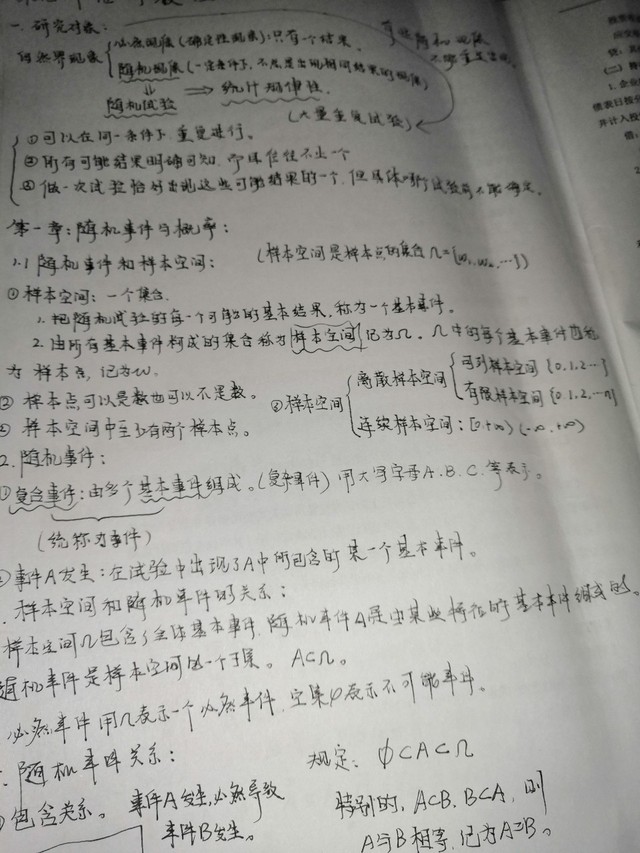 一. 研究对象:
自然界现象 必然现象 (确定性现象):只有一个结果. 有些随机现象
随机现象 (一定条件下, 不总是出现相同结果的现象) 不能重复
随机试验 ⇒ 统计规律性.
(大量重复试验)
①可以在同一条件下重复进行。
②所有可能结果明确可知, 不止一个
③做一次试验恰好出现这些可能结果的一个, 但具体哪个试验前不能确定.
第一章:随机事件与概率:
1.1 随机事件和样本空间: (样本空间是样本点的集合 Ω={ω₁,ω₂,…})
①样本空间: 一个集合.
1. 把随机试验的每一个可能的基本结果, 称为一个基本事件。
2. 由所有基本事件构成的集合称为样本空间 记为Ω. Ω中的每个基本事件
为 样本点, 记为ω.
② 样本点可以是数也可以不是数。 ④样本空间 离散样本空间 可列样本空间 {0.1.2…}
有限样本空间 {0.1.2,…n}
③ 样本空间中至少有两个样本点。 连续样本空间: [0,+∞) (-∞,+∞)
2. 随机事件:
①复合事件:由多个基本事件组成。(复杂事件) 用大写字母A.B.C.等表示。
(统称为事件)
②事件A发生:在试验中出现了A中所包含的某一个基本事件。
样本空间和随机事件的关系:
样本空间Ω包含了全体基本事件, 随机事件A是由某些特征的基本事件组成的。
随机事件是样本空间的一个子集。 A⊂Ω。
必然事件用Ω表示一个必然事件, 空集φ表示不可能事件。
随机事件关系: 规定: φ⊂A⊂Ω
①包含关系。 事件A发生,必然导致 特别的, A⊂B. B⊂A, 则
事件B发生。 A与B相等, 记为A=B。